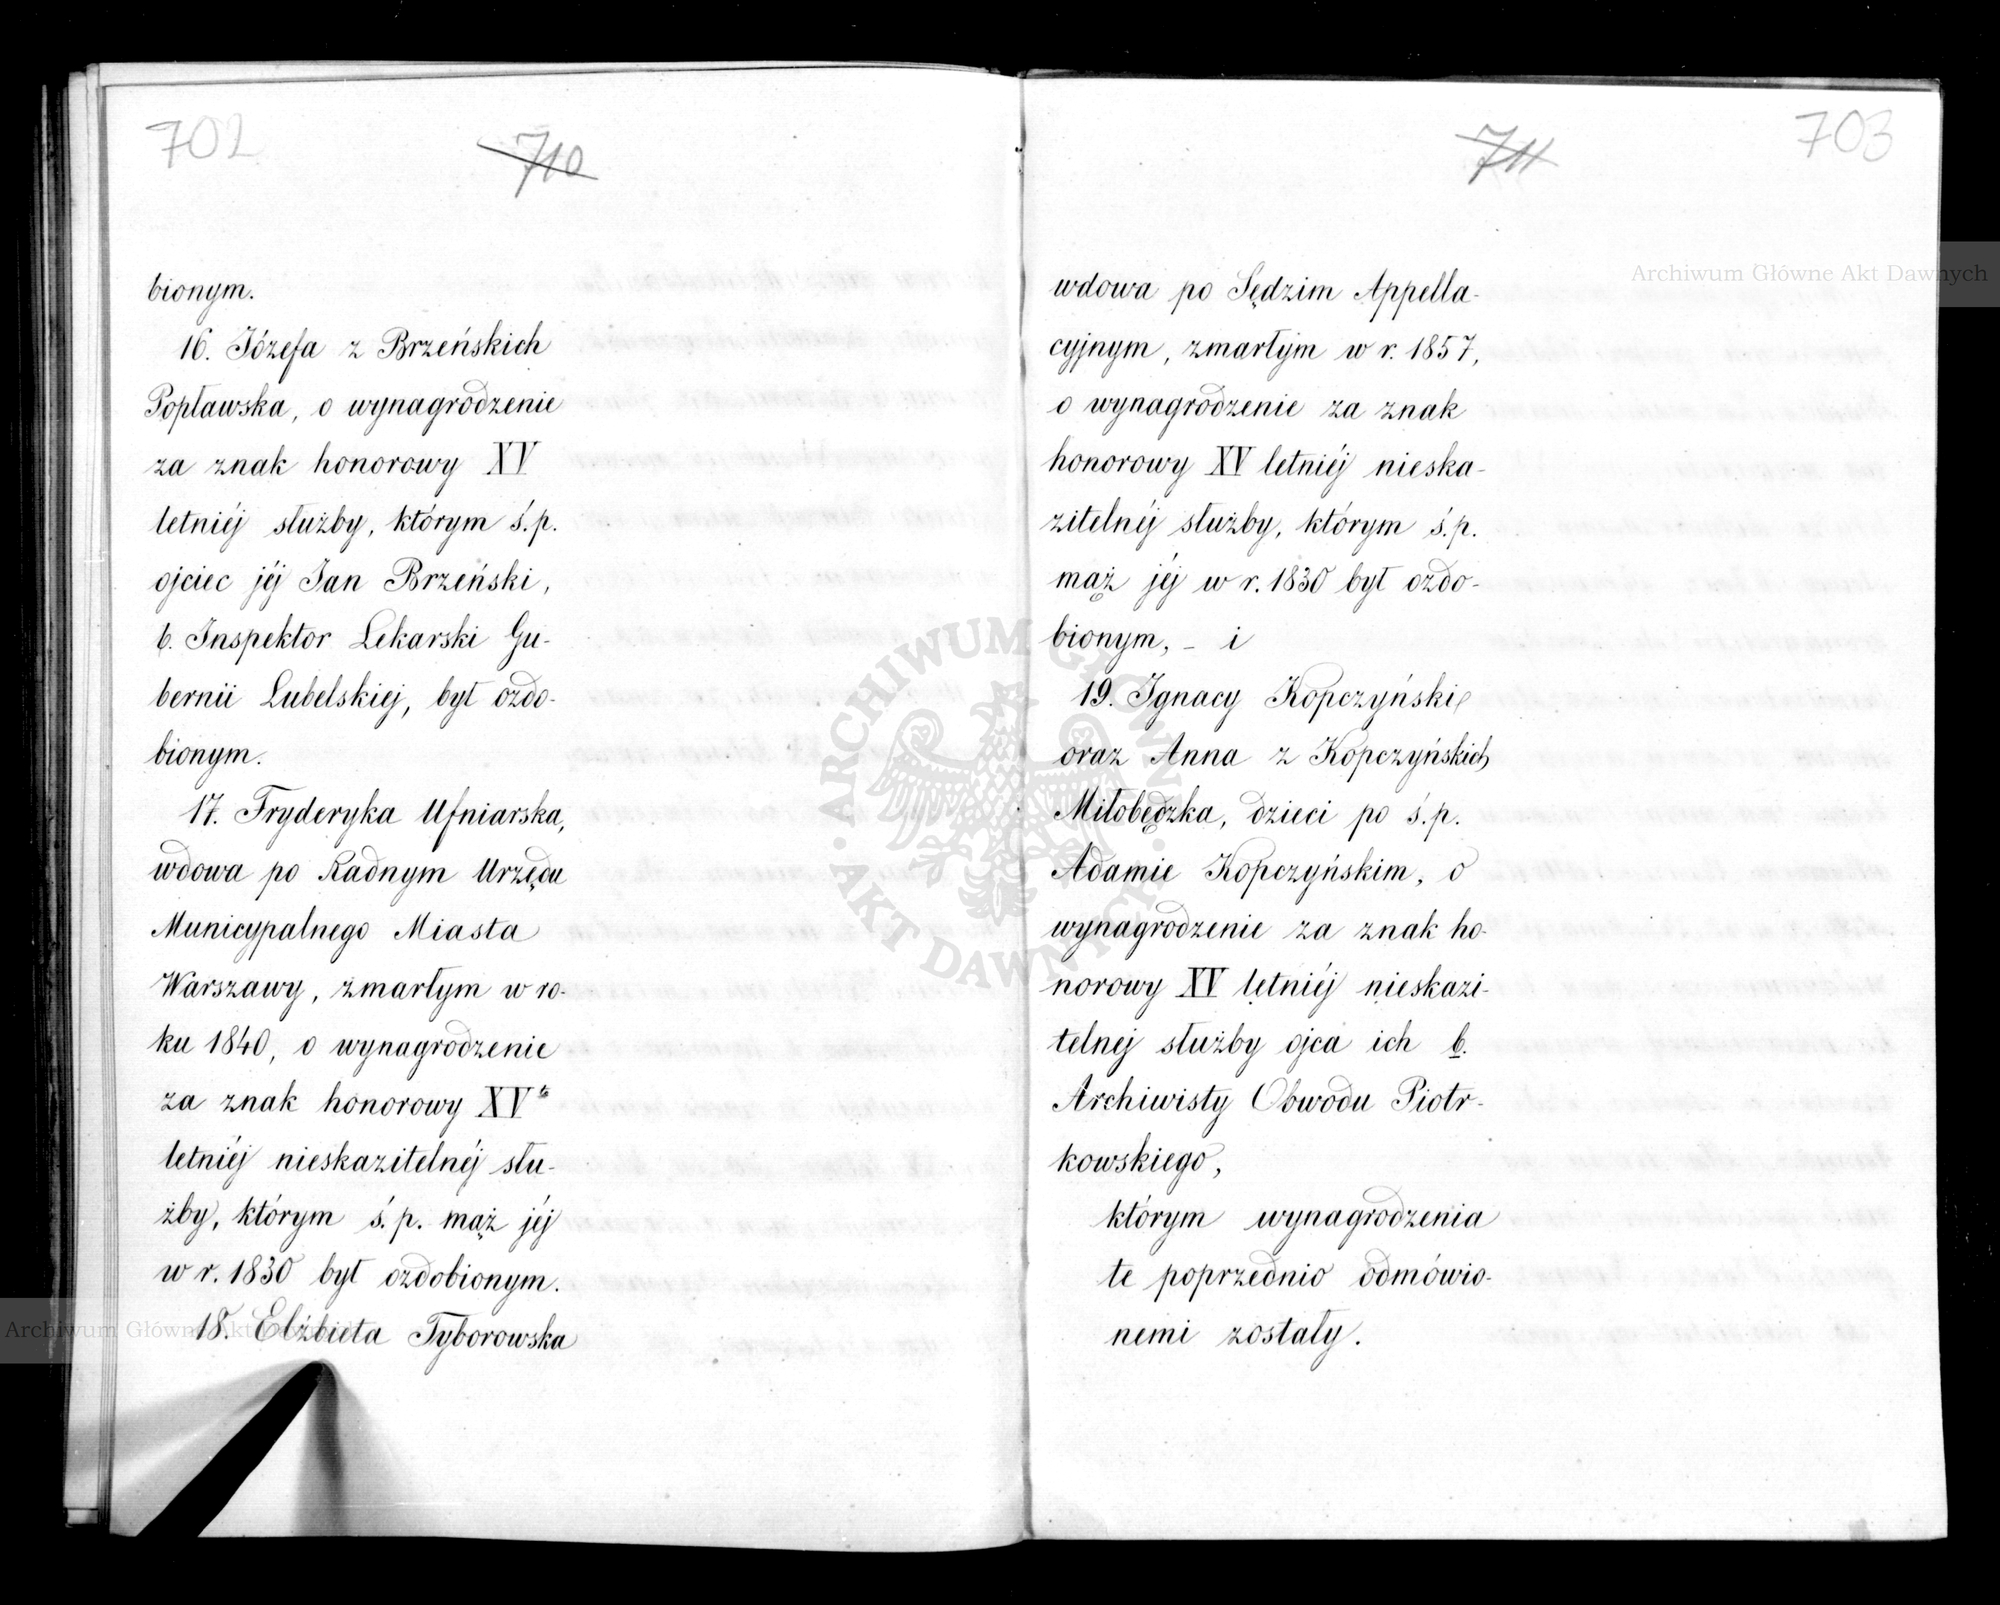 702
710
bionym.
16. Józefa z Brzeńskich
Popławska, o wynagrodzenie
za znak honorowy XV
letniéj służby, którym ś.p.
ojciec jéj Jan Brzeński,
b. Inspektor Lekarski Gu-
bernii Lubelskiej, był ozdo-
bionym.
17. Fryderyka Ufniarska,
wdowa po Radnym Urzędu
Municypalnego Miasta
Warszawy, zmarłym w ro-
ku 1840, o wynagrodzenie
za znak honorowy XV
letniéj nieskazitelnéj słu-
żby, którym ś.p. mąż jéj
w r. 1830 był ozdobionym.
18. Elżbieta Tyborowska
711
703
wdowa po Sędzim Appella-
cyjnym, zmarłym w r. 1857,
o wynagrodzenie za znak
honorowy XV letniéj nieska-
zitelnéj służby, którym ś.p.
mąż jéj w r. 1830 był ozdo-
bionym, - i
19. Ignacy Kopczyński
oraz Anna z Kopczyńskich
Miłobędzka, dzieci po ś.p.
Adamie Kopczyńskim, o
wynagrodzenie za znak ho-
norowy XV letniéj nieskazi-
telnej służby ojca ich b.
Archiwisty Obwodu Piotr-
kowskiego,
którym wynagrodzenia
te poprzednio odmówio-
nemi zostały.
Archiwum Główne Akt Dawnych
Archiwum Główne Akt Dawnych
ARCHIWUM GŁÓWNE AKT DAWNYCH